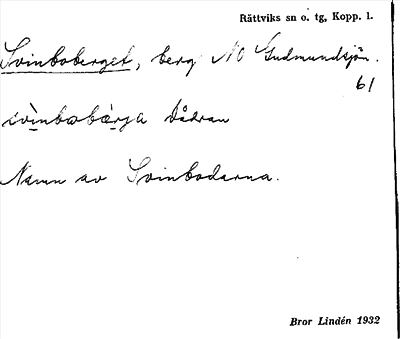 Rättviks sn o. tg, Kopp. l.
Svinboberget, berg NO Gudmundsjön.
61
svinbobærja Dådran
Namn av Svinbodarna.
Bror Lindén 1932